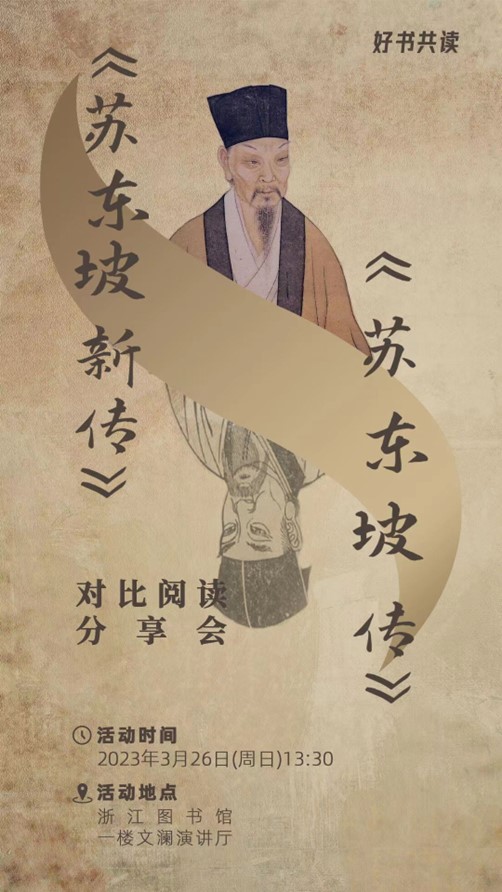 好书共读
《苏东坡新传》
《苏东坡传》
对比阅读
分享会
活动时间
2023年3月26日(周日)13:30
活动地点
浙江图书馆
一楼文澜演讲厅